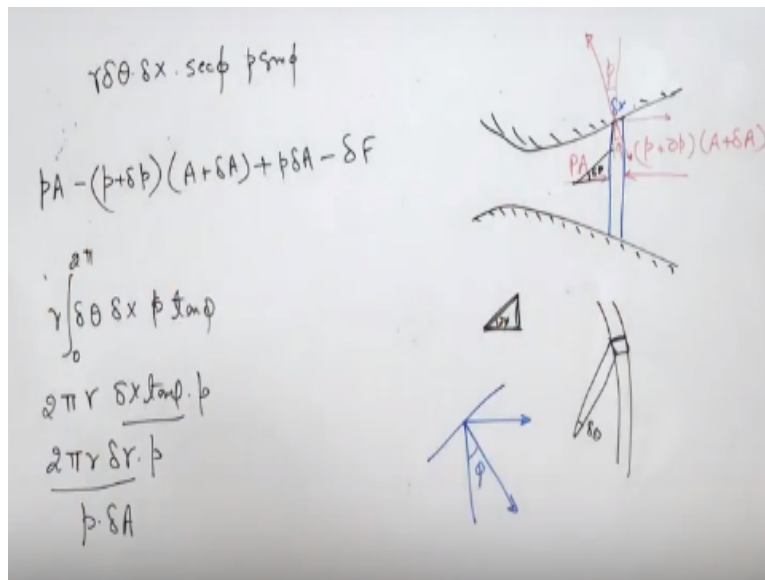 rδθ.δx.secϕ psinϕ
pA-(p+δp)(A+δA)+pδA-δF
r∫₀²π δθ δx p tanϕ
2πr δxtanϕ.p
2πr δr.p
p.δA
δx
PA
(p+δp)(A+δA)
ϕ
δθ